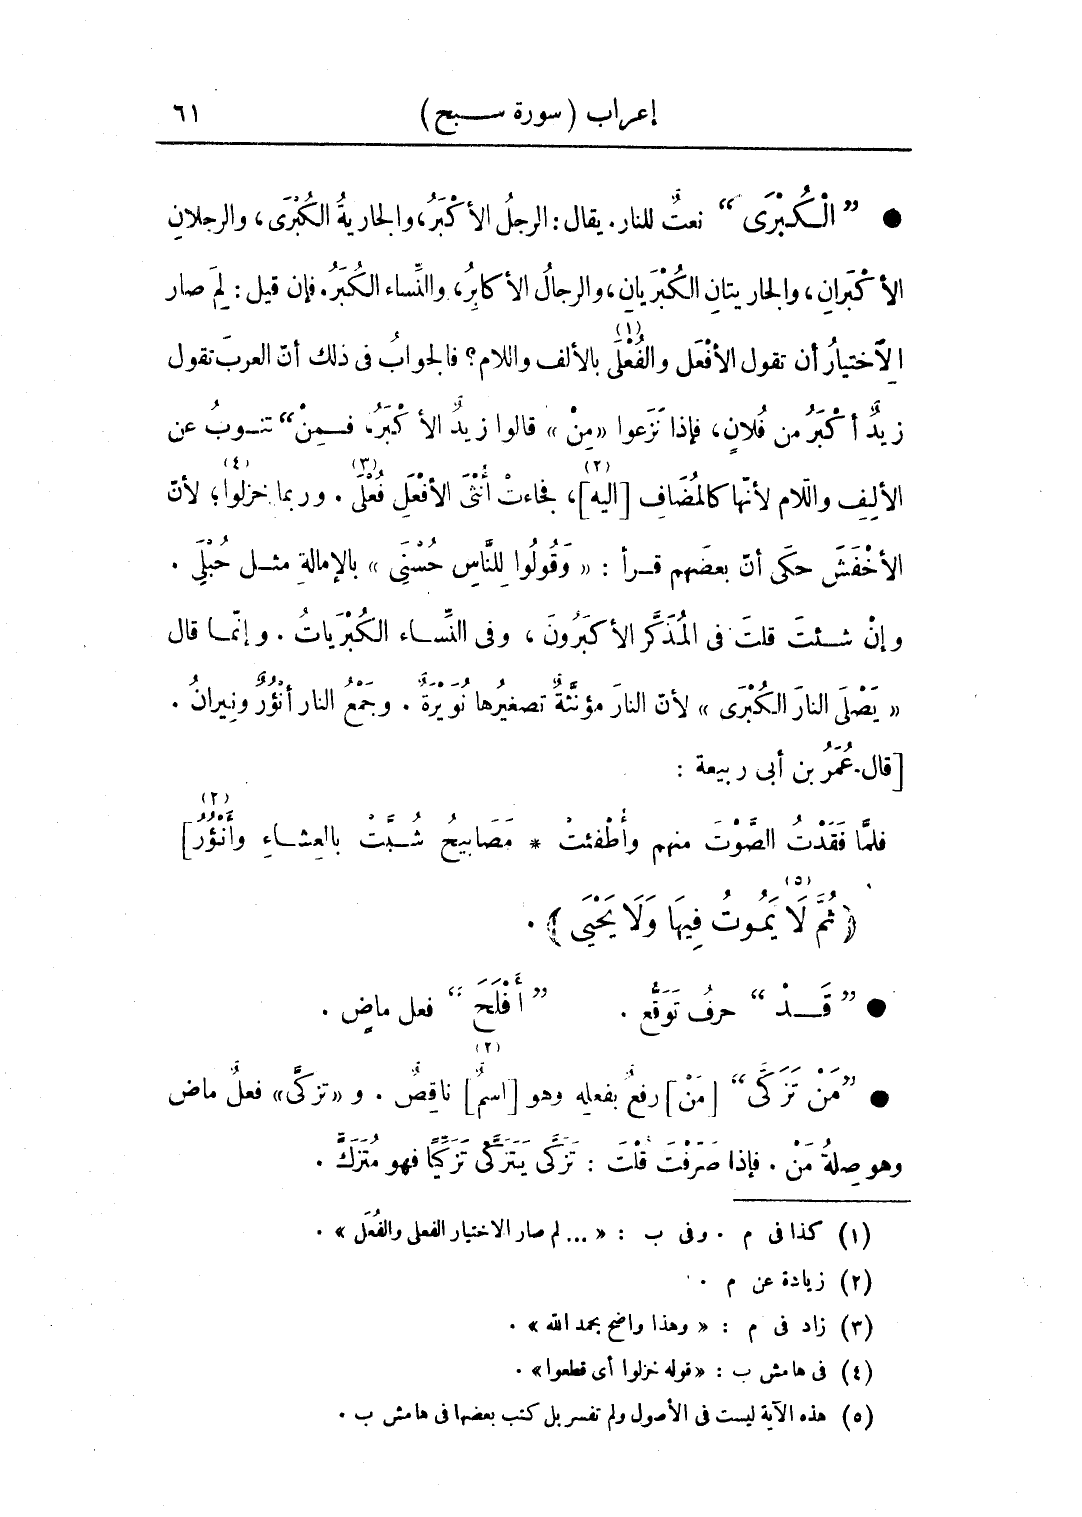 إعراب (سورة سبح) ٦١
● ”الْكُبْرَى“ نعتٌ للنار. يقال: الرجلُ الأكْبَرُ، والجاريةُ الكُبْرَى، والرجلانِ
الأكْبَرانِ، والجاريتانِ الكُبْرَيانِ، والرجالُ الأكابِرُ، والنِّساء الكُبَرُ. فإن قيل: لِمَ صار
الاِختيارُ أن تقول الأفْعَل والفُعْلَى (١) بالألف واللام؟ فالجوابُ فى ذلك أنّ العربَ تقول
زيدٌ أكْبَرُ من فُلانٍ، فإذا نَزَعوا «مِنْ» قالوا زيدٌ الأكْبَرُ، فـمِنْ“ تنـوبُ عن
الألِفِ واللّام لأنّها كالمُضَافِ [اليه] (٢)، فجاءتْ أُنْثَى الأفْعَلِ فُعْلَى (٣). وربما خزلوا (٤)؛ لأنّ
الأخْفَشَ حكَى أنّ بعضَهم قـرأ: «وَقُولُوا لِلنَّاسِ حُسْنَى» بالإمالةِ مثـل حُبْلَى.
وإنْ شـئتَ قلتَ فى المُذَكَّر الأكبَرُونَ، وفى النِّسـاء الكُبْرَياتُ. وإنّمـا قال
«يَصْلَى النارَ الكُبْرَى» لأنّ النارَ مؤنثَّةٌ تصغيرُها نُوَيْرَةٌ. وجَمْعُ النار أنْؤُرٌ ونِيرانُ.
[قال عُمَرُ بن أبى ربيعة:
فلمَّا فَقَدْتُ الصَّوْتَ منهم وأُطْفئتْ * مَصَابيحُ شُـبَّتْ بالعِشـاءِ وأَنْؤُرُ] (٢)
﴿ثُمَّ لَا يَمُوتُ فِيهَا وَلَا يَحْيَى﴾ (٥).
● ”قَــدْ“ حرفُ تَوَقُّع. ”أَفْلَحَ“ فعل ماضٍ.
● ”مَنْ تَزَكَّى“ [مَنْ] رفعٌ بفعلِه وهو [اسمٌ] (٢) ناقِصٌ. و«تزكَّى» فعلٌ ماض
وهو صِلةُ مَنْ. فإذا صَرّفْتَ قُلْتَ: تَزَكَّى يَتَزَكَّى تَزَكِّيًا فهو مُتَزَكٍّ.
(١) كذا فى م. وفى ب: «... لم صار الاختيار الفعلى والفُعَل».
(٢) زيادة عن م.
(٣) زاد فى م: «وهذا واضح بحمد الله».
(٤) فى هامش ب: «قوله خزلوا أى قطعوا».
(٥) هذه الآية ليست فى الأصول ولم تفسر بل كتب بعضها فى هامش ب.